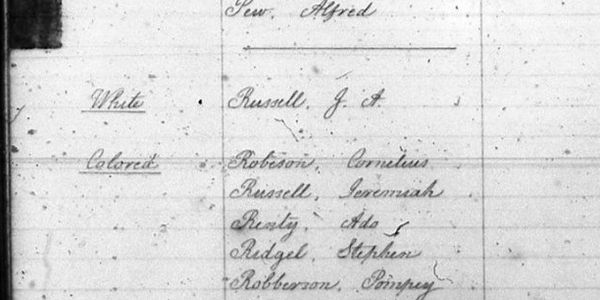 Sew, Alfred
White Russell, J. A.
Colored Robeson, Cornelius
Russell, Jeremiah
Renty, Ado
Ridgel, Stephen
Robberson, Pompey